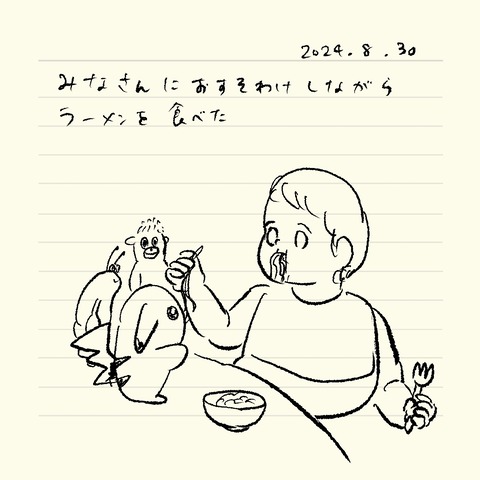 2024.8.30
みなさんに おすそわけ しながら
ラーメンを 食べた